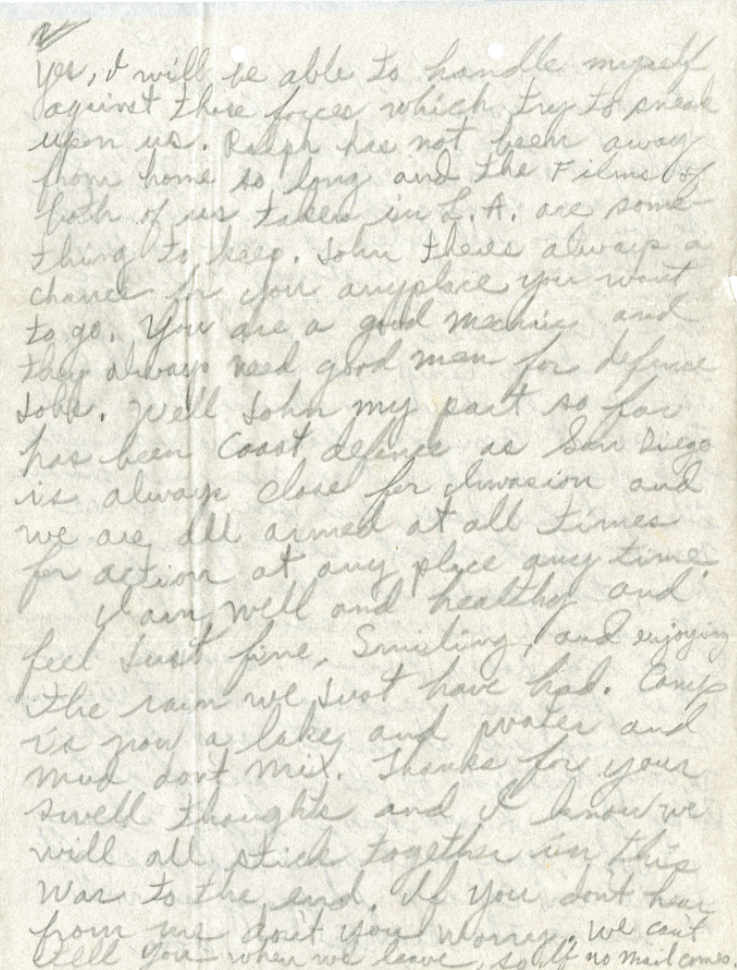 2/
Yes, I will be able to handle myself
against those forces which try to sneak
upon us. Ralph has not been away
from home so long and the Films of
both of us taken in L.A. are some-
thing to keep. John theres always a
chance for you anyplace you want
to go. You are a good mechnic and
they always need good men for defence
Jobs. Well John my part so far
has been Coast defence as San Diego
is always close for invasion and
we are all armed at all times
for action at any place any time.
I am well and healthy and
feel Just fine, Smiling, and enjoying
the rain we Just have had. Camp
is now a lake and water and
mud dont mix. Thanks for your
swell thoughts and I know we
will all stick together in this
War to the end. If you don't hear
from me don't you worry. We can't
tell you when we leave, so if no mail comes.